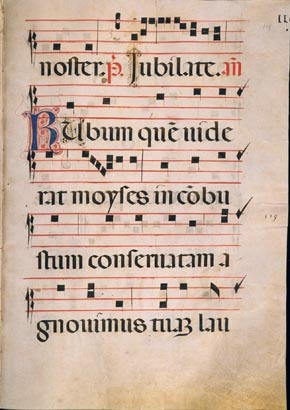 noster. p̄. Jubilate. añ
Rubum quē uide
rat moyses in cōbu
stum conseruatam a
gnouimus tuaꝫ lau
119